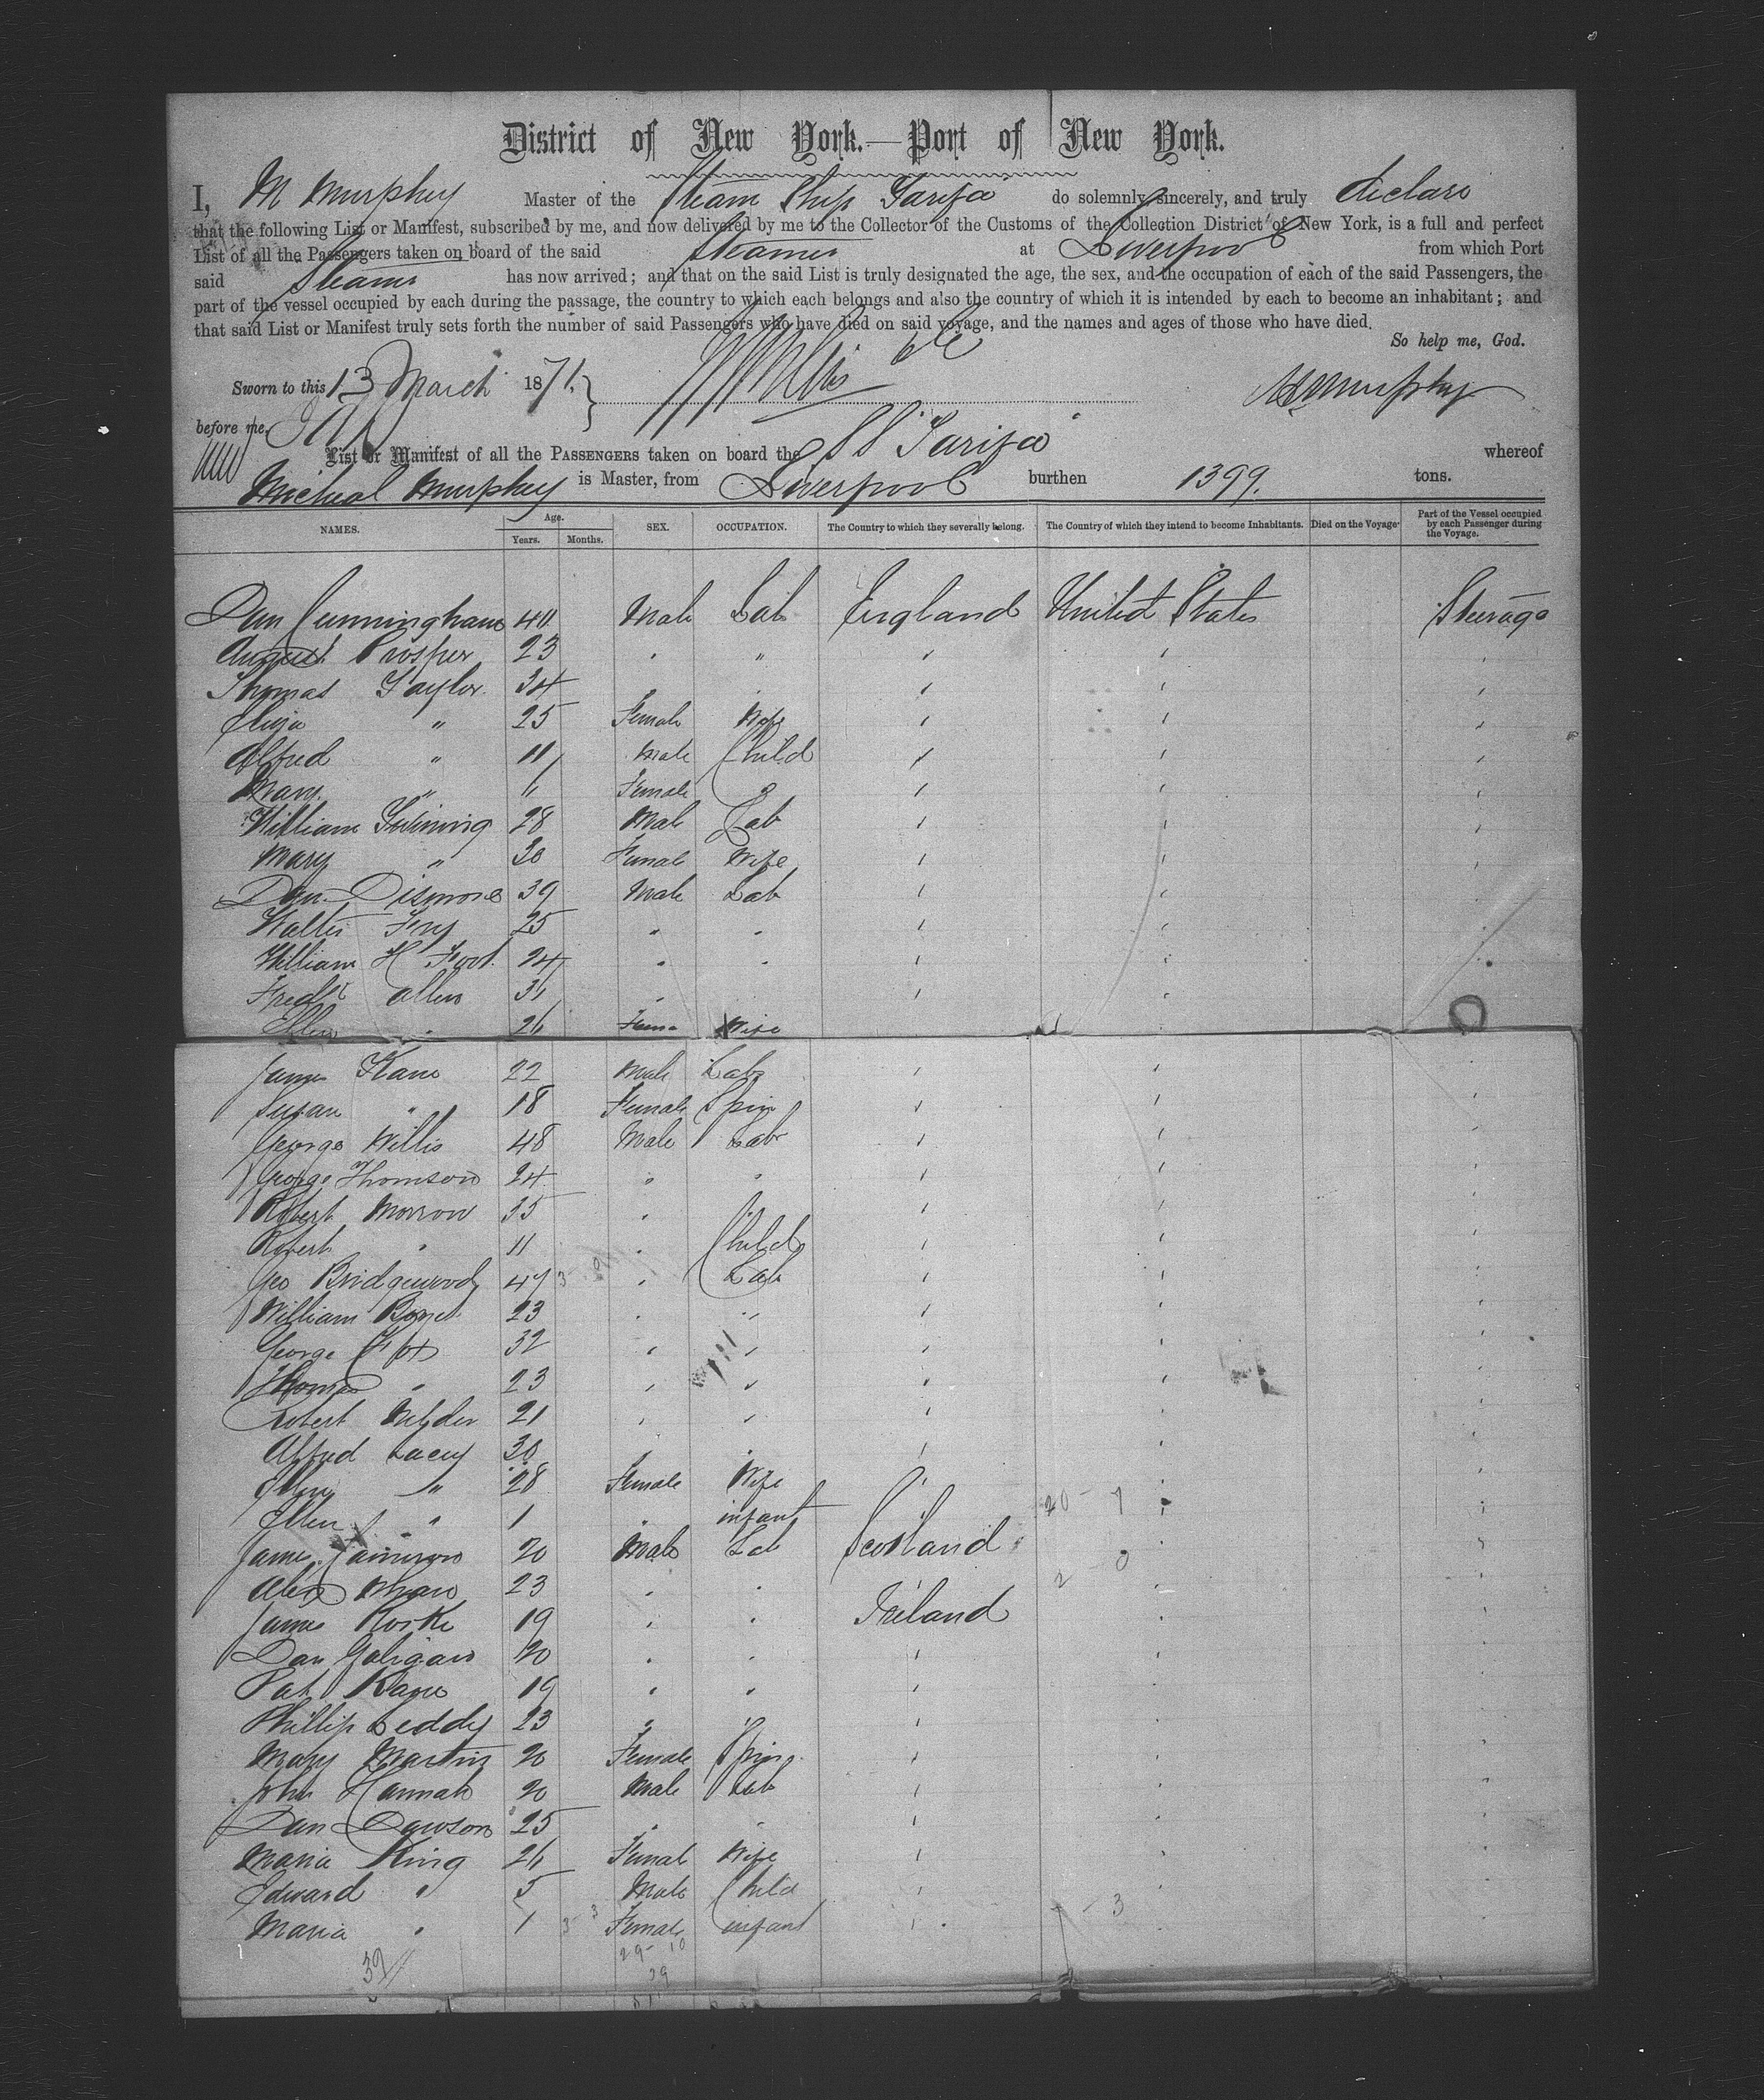 District of New York.—Port of New York.
I, M Murphy Master of the Steam Ship Tarifa do solemnly, sincerely, and truly declare
that the following List or Manifest, subscribed by me, and now delivered by me to the Collector of the Customs of the Collection District of New York, is a full and perfect
List of all the Passengers taken on board of the said Steamer at Liverpool from which Port
said Steamer has now arrived; and that on the said List is truly designated the age, the sex, and the occupation of each of the said Passengers, the
part of the vessel occupied by each during the passage, the country to which each belongs and also the country of which it is intended by each to become an inhabitant; and
that said List or Manifest truly sets forth the number of said Passengers who have died on said voyage, and the names and ages of those who have died.
So help me, God.
Sworn to this 13 March 1871. M Murphy
before me
List or Manifest of all the PASSENGERS taken on board the SS Tarifa whereof
Micheal Murphy is Master, from Liverpool burthen 1399. tons.
NAMES. Age. Years. Months. SEX. OCCUPATION. The Country to which they severally belong. The Country of which they intend to become Inhabitants. Died on the Voyage Part of the Vessel occupied by each Passenger during the Voyage.
Dan Cunningham 40 Male Lab England United States Steerage
August Prosper 23 " " " " "
Thomas Taylor 34 " " " "
Eliza " 25 Female Wife " " "
Alfred " 11 Male Child " " "
Mary " 6 Female " " "
William 28 Male Lab " " "
Mary " 30 Female Wife " " "
Dan Dismore 39 Male Lab " " "
Walter 25 " " " " "
William H Foot 24 " " " "
Fredk Allen 31 " " "
Ellen " 26 Fema Wife
James Kane 22 Male Lab " " "
Susan " 18 Female Spin " " "
George Willis 48 Male Lab " " "
George Thomson 24 " " " " "
Robert Morrow 35 " " " " "
Robert " 11 " Child " " "
Geo Bridgewood 47 " Lab " " "
William 23 " " " " "
George Fox 32 " " " " "
Thomas " 23 " " " " "
Robert 21 " " " " "
Alfred Lacey 30 " " " "
Ellen " 28 Female Wife " " "
Ellen " 1 " infant " "
James Cameron 20 Male Lab Scotland " "
Alex 23 " " " " "
James Rorke 19 " " Ireland " "
Dan Galigan 20 " " " " "
Pat Kane 19 " " " " "
Phillip Leddy 23 " " " " "
Mary Martin 20 Female Spin " " "
John Hannah 20 Male Lab " " "
Dan Dawson 25 " " " " "
Maria King 26 Female Wife " " "
Edward " 5 Male Child " " "
Maria " 1 Female infant " "
39